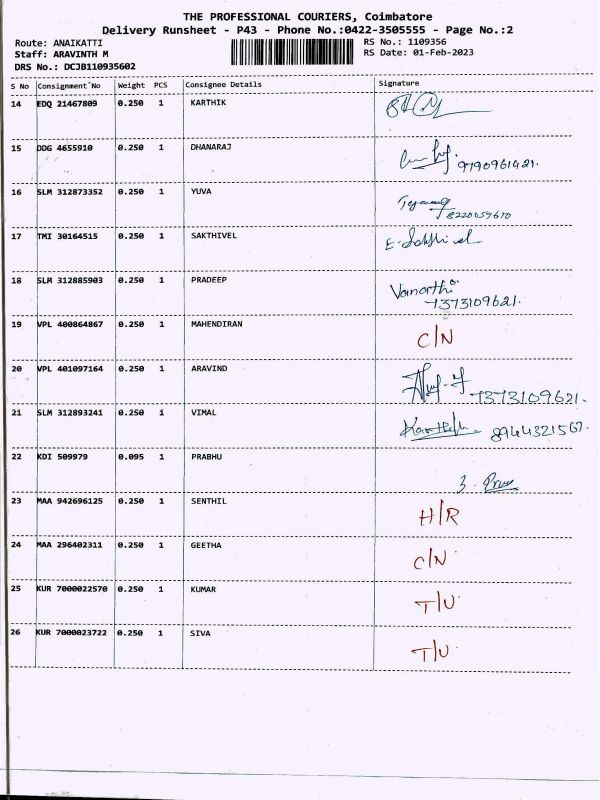 THE PROFESSIONAL COURIERS, Coimbatore
Delivery Runsheet - P43 - Phone No.:0422-3505555 - Page No.:2
Route: ANAIKATTI RS No.: 1109356
Staff: ARAVINTH M RS Date: 01-Feb-2023
DRS No.: DCJB110935602
S No Consignment No Weight PCS Consignee Details Signature
14 EDQ 21467809 0.250 1 KARTHIK
15 DDG 4655910 0.250 1 DHANARAJ
9790961421.
16 SLM 312873352 0.250 1 YUVA
8220059670
17 TMI 30164515 0.250 1 SAKTHIVEL E. Sakthivel
18 SLM 312885903 0.250 1 PRADEEP
7373109621.
19 VPL 400864867 0.250 1 MAHENDIRAN C/N
20 VPL 401097164 0.250 1 ARAVIND
7373109621.
21 SLM 312893241 0.250 1 VIMAL
8944321567.
22 KDI 509979 0.095 1 PRABHU
23 MAA 942696125 0.250 1 SENTHIL H/R
24 MAA 296402311 0.250 1 GEETHA C/N
25 KUR 7000022570 0.250 1 KUMAR T/U
26 KUR 7000023722 0.250 1 SIVA T/U